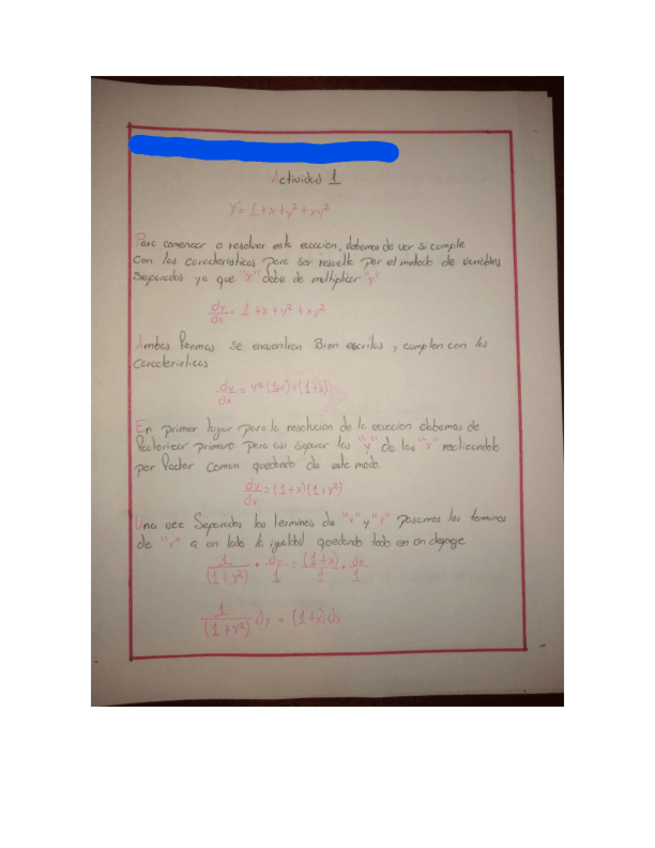 Actividad 1
Y' = 1+x+y²+xy²
Para comenzar a resolver esta ecuacion, debemos de ver si cumple
Con las caracteristicas para ser resuelta por el metodo de variables
Separadas ya que "x" debe de multiplicar "y"
dy/dx = 1+x+y²+xy²
Ambas formas se encuentran Bien escritas y cumplen con las
Caracteristicas
dy/dx = y²(1+x)+(1+x)
En primer lugar para la resolucion de la ecuacion debemos de
factorizar primero para asi separar las "y" de las "x" realizandolo
por factor comun quedando de este modo.
dy/dx = (1+x)(1+y²)
Una vez Separados los terminos de "x" y "y" pasamos los terminos
de "y" a un lado la igualdad quedando todo en un despeje
1/(1+y²) • dy/1 = (1+x)/1 • dx/1
1/(1+y²) dy = (1+x)dx